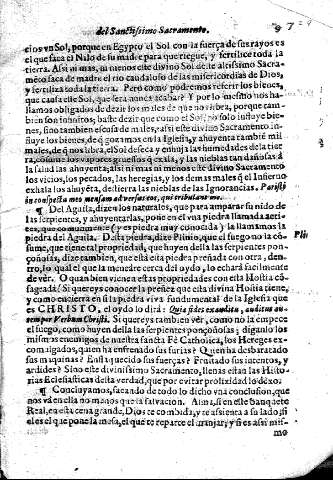 del Sanctissimo Sacramento. 97
cios vn Sol, porque en Egypto el Sol con la fuerça de sus rayos es
el que saca õ Nilo de su madre para que riegue, y fertilice toda la
tierra. Assi ni mas, ni menos este diuino Sol deste altissimo Sacra-
mẽto saca de madre el rio caudaloso de las misericordias de Dios,
y fertiliza toda la tierra. Pero como podremos referir los bienes,
que causa este Sol, que serà nunca acabar? Y por lo mesmo nos ha-
llamos obligados de dezir los males de que nos libra, porque tam-
bien son infinitos; baste dezir que como el Sol, no solo influye bie-
nes, sino tambien escusa de males, assi este diuino Sacramento in-
fluye los bienes, de q̃ gozamos en la Iglesia, y ahuyenta tambiẽ mil
males, de q̃ nos libra, el Sol deseca y enxuja las humedades de la tier
ra, cõsume los vapores gruessos q̃ exala, y las nieblas tan dañosas â
la salud las ahuyenta; assi ni mas ni menos este diuino Sacramento
los vicios, los pecados, las heregias, y los demas males q̃ el Infierno
exhala los ahuyẽta, destierra las nieblas de las Ignorancias. Parasti
in conspectu meo mensam aduersus eos, qui tribulant me.
¶ Del Aguila, dizen los naturales, que para amparar su nido de
las serpientes, y ahuyentarlas, pone en el vna piedra llamada aeti-
tes, que comunmente (y es piedra muy conocida) la llamamos la
piedra del Aguila. Desta piedra, dize Plinio, que el fuego no la cõ-
sume, que tiene tal propriedad, que huyen della las serpientes pon-
çoñosas, dize tambien, que està esta piedra preñada con otra, den-
tro, lo qual el que la meneàre cerca del oydo, lo echarà facilmente
de vèr. O quan bien vienen estas propriedades con esta Hostia cõ-
sagrada! Si quereys conocer la preñez que esta diuina Hostia tiene,
y como encierra en si la piedra viua fundamental de la Iglesia que
es CHRISTO, el oydo lo dirà: Quia fides ex auditu, auditus au-
tem per Verbum Christi. Si quereys tambien vèr, como no la empece
el fuego, como huyen della las serpientes ponçoñosas; diganlo los
mismos enemigos de nuestra santa Fè Catholica, los Hereges ex-
comulgados, quien ha enfrenado sus furias? Quien ha desbaratado
sus maquinas? Enflaquecido sus fuerças? Frustrado sus intentos, y
ardides? Sino este diuinissimo Sacramento, llenas estan las Histo-
rias Eclesiasticas desta verdad, que por euitar prolixidad lo dexo.
¶ Concluyamos, sacando de todo lo dicho vna conclusion, que
nos và en ella no menos que la saluacion. Alma, si en este banquete
Real, en esta cena grande, Dios te combida, y te assienta a su lado, si
el es el que pone la mesa, el que te reparte el manjar, y si es assi mis-
mo
Pli